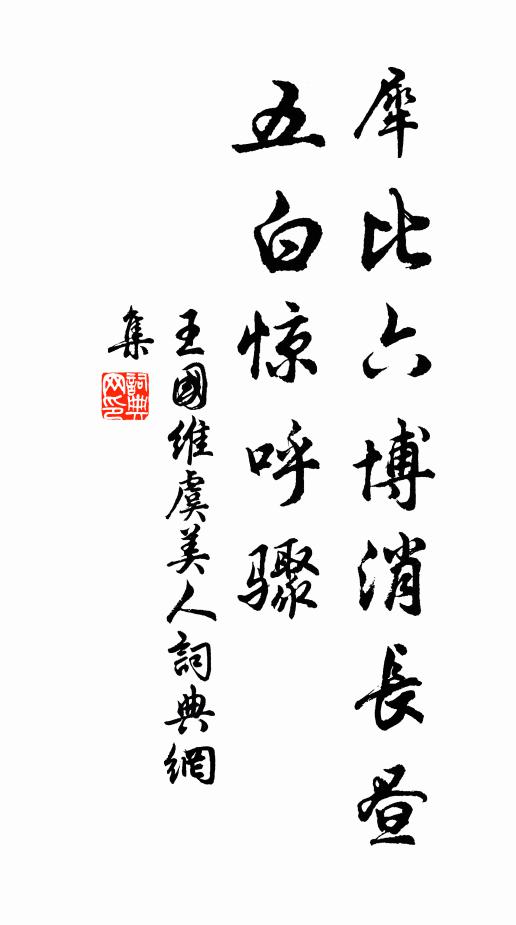 犀比六博消長昼
五白惊呼骤
王國维虞美人詞典網
集
詞典
网印